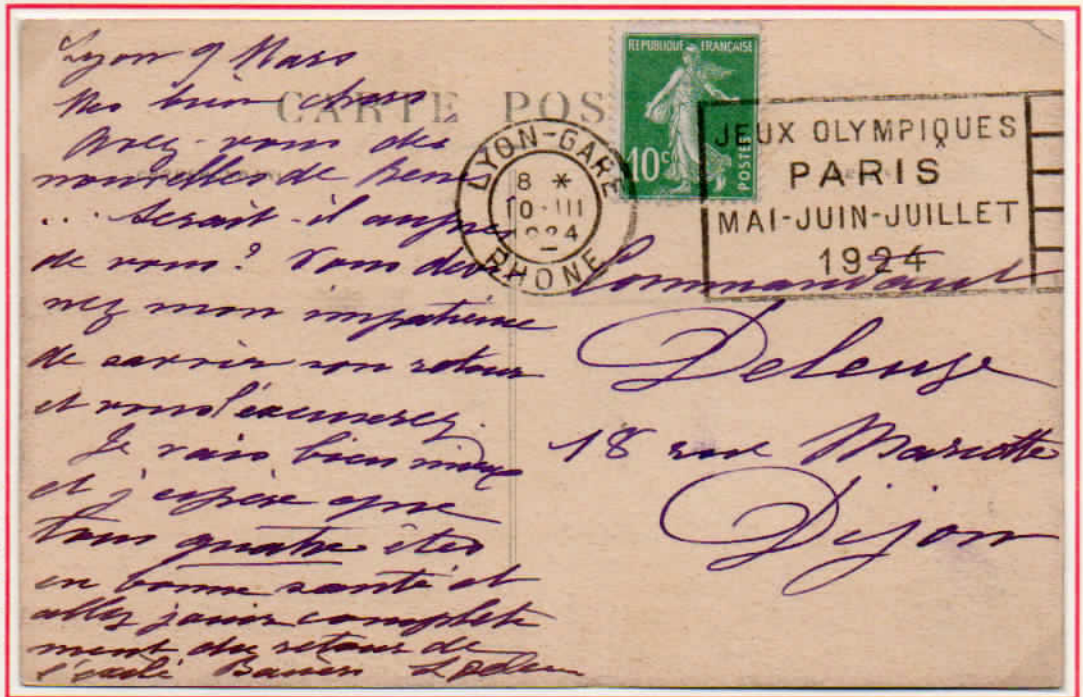 Lyon 9 Mars
Mes bien chers
Avez-vous des
nouvelles de René
... Serait-il auprès
de vous? Vous devi
nez mon impatience
de savoir son retour
et vous l'excuserez.
Je vais bien mieux
et j'espère que
tous quatre êtes
en bonne santé et
allez jouir complète
ment du retour de
l'exilé Baisers
CARTE POS
REPUBLIQUE FRANÇAISE
10c
POSTES
LYON-GARE
8 *
10-III
1924
RHONE
JEUX OLYMPIQUES
PARIS
MAI-JUIN-JUILLET
1924
Commandant
Deleuze
18 rue Mariotte
Dijon